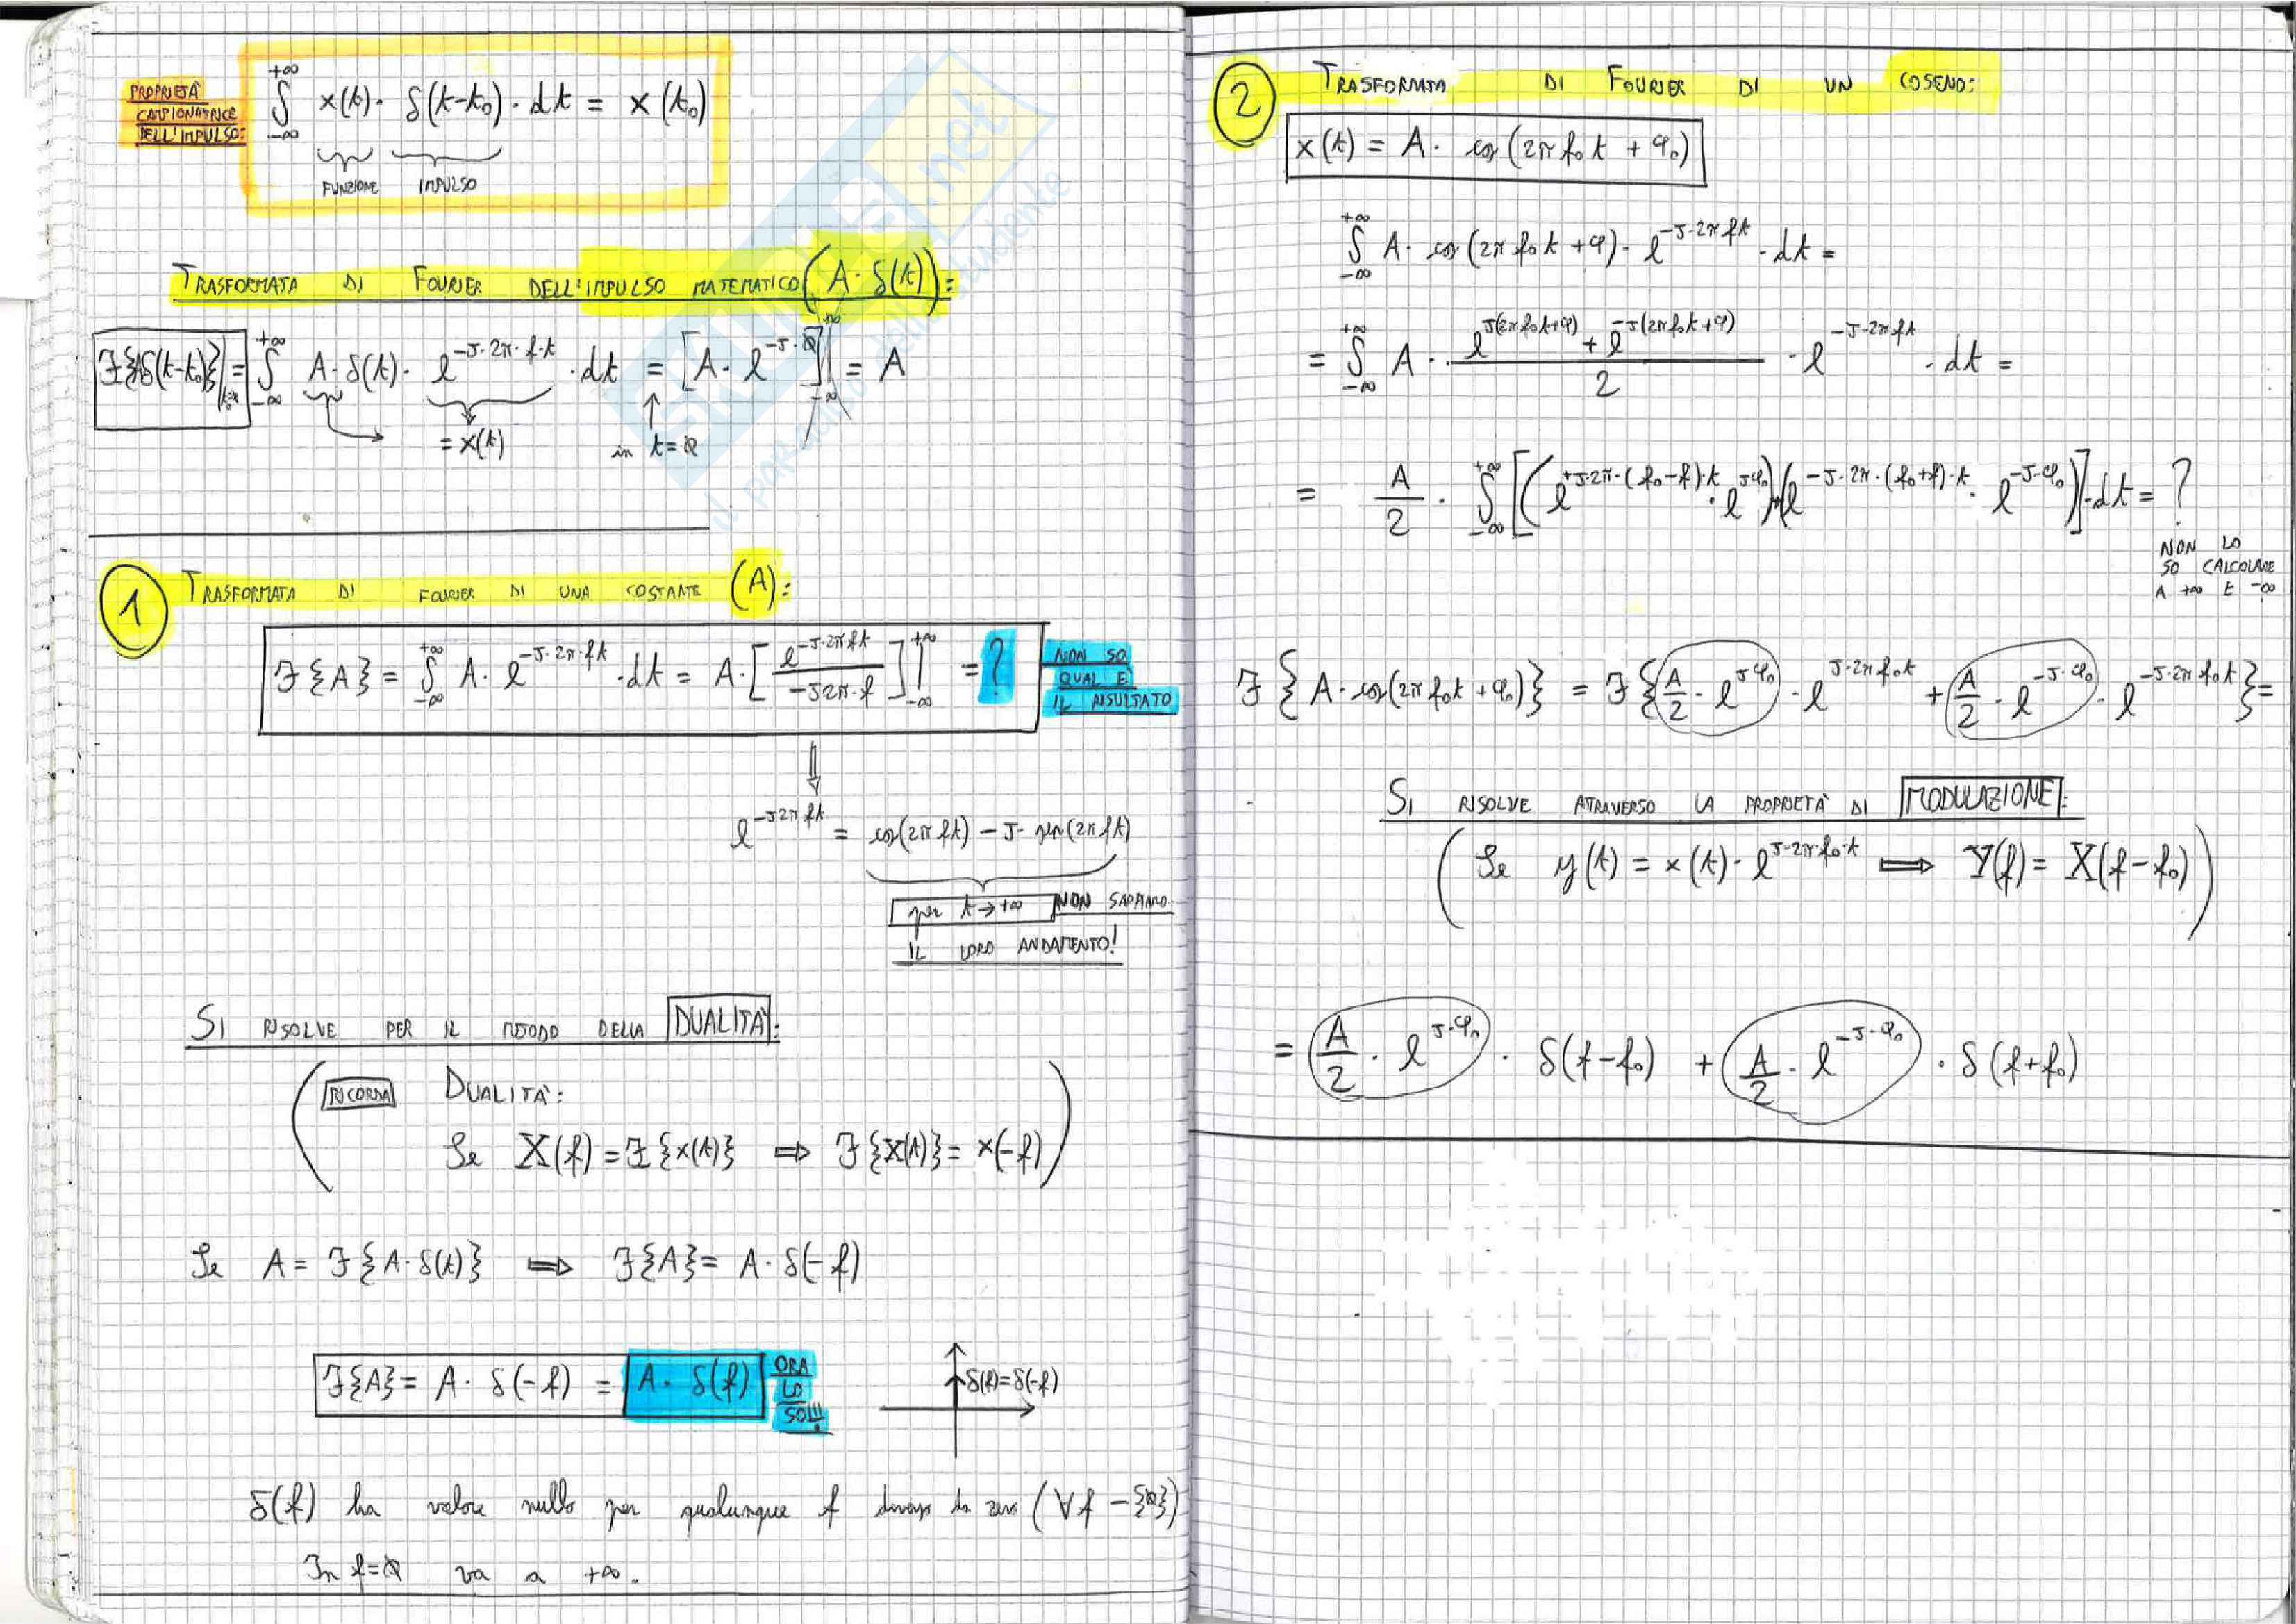 PROPRIETÀ
CAMPIONATRICE
DELL'IMPULSO:
∫_{-∞}^{+∞} x(t) · δ(t-t₀) · dt = x(t₀)
FUNZIONE IMPULSO
TRASFORMATA DI FOURIER DELL'IMPULSO MATEMATICO (A · δ(t)):
= ∫_{-∞}^{+∞} A · δ(t) · e^{-J·2π·f·t} · dt = [A · e^{-J·0}] = A
= x(t)
in t=0
1 TRASFORMATA DI FOURIER DI UNA COSTANTE (A):
ℱ{A} = ∫_{-∞}^{+∞} A · e^{-J·2π·ft} · dt = A · [e^{-J·2πft} / -J2π·f]|_{-∞}^{+∞} = ?
NON SO
QUAL È
IL RISULTATO
e^{-J2πft} = cos(2πft) - J · sen(2πft)
per t→+∞ NON SAPPIAMO
IL LORO ANDAMENTO!
SI RISOLVE PER IL METODO DELLA DUALITÀ:
RICORDA DUALITÀ:
Se X(f) = ℱ{x(t)} ⟹ ℱ{X(t)} = x(-f)
Se A = ℱ{A·δ(t)} ⟹ ℱ{A} = A · δ(-f)
ℱ{A} = A · δ(-f) = A · δ(f)
ORA
LO
SO!!!
δ(f)=δ(-f)
δ(f) ha valore nullo per qualunque f diverso da zero (∀f - {0})
In f=0 va a +∞.
2 TRASFORMATA DI FOURIER DI UN COSENO:
x(t) = A · cos(2πf₀t + φ₀)
∫_{-∞}^{+∞} A · cos(2πf₀t + φ) · e^{-J·2πft} · dt =
= ∫_{-∞}^{+∞} A · (e^{J(2πf₀t+φ)} + e^{-J(2πf₀t+φ)}) / 2 · e^{-J·2πft} · dt =
= A/2 · ∫_{-∞}^{+∞} [(e^{+J·2π·(f₀-f)·t} · e^{Jφ₀}) + (e^{-J·2π·(f₀+f)·t} · e^{-J·φ₀})] · dt = ?
NON LO
SO CALCOLARE
A +∞ E -∞
ℱ{A · cos(2πf₀t + φ₀)} = ℱ{A/2 · e^{Jφ₀} · e^{J·2πf₀t} + A/2 · e^{-J·φ₀} · e^{-J·2πf₀t}} =
SI RISOLVE ATTRAVERSO LA PROPRIETÀ DI MODULAZIONE:
(Se y(t) = x(t) · e^{J·2πf₀·t} ⟹ Y(f) = X(f-f₀))
= A/2 · e^{J·φ₀} · δ(f-f₀) + A/2 · e^{-J·φ₀} · δ(f+f₀)
SKUOLA.net